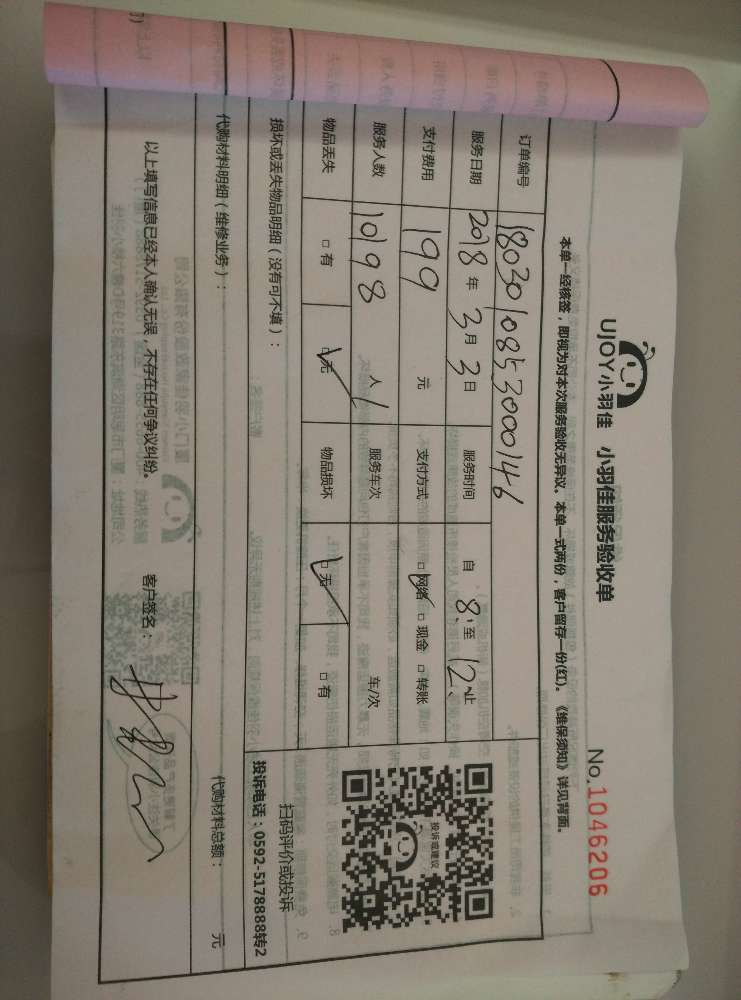 UJOY小羽佳 小羽佳服务验收单
No.1046206
本单一经核签，即视为对本次服务验收无异议。本单一式两份，客户留存一份(红)。《维保须知》详见背面。
订单编号 1803010853000146
服务日期 2018年3月3日 服务时间 自8:至12:止
支付费用 199 元 支付方式 □网络 □现金 □转账
服务人数 10198 人 1 服务车次 车/次
物品丢失 □有 □无 物品损坏 □无 □有
损坏或丢失物品明细（没有可不填）：
投诉或建议
扫码评价或投诉
投诉电话：0592-5178888转2
代购材料明细（维修业务）： 代购材料总额： 元
以上填写信息已经本人确认无误，不存在任何争议纠纷。 客户签名：